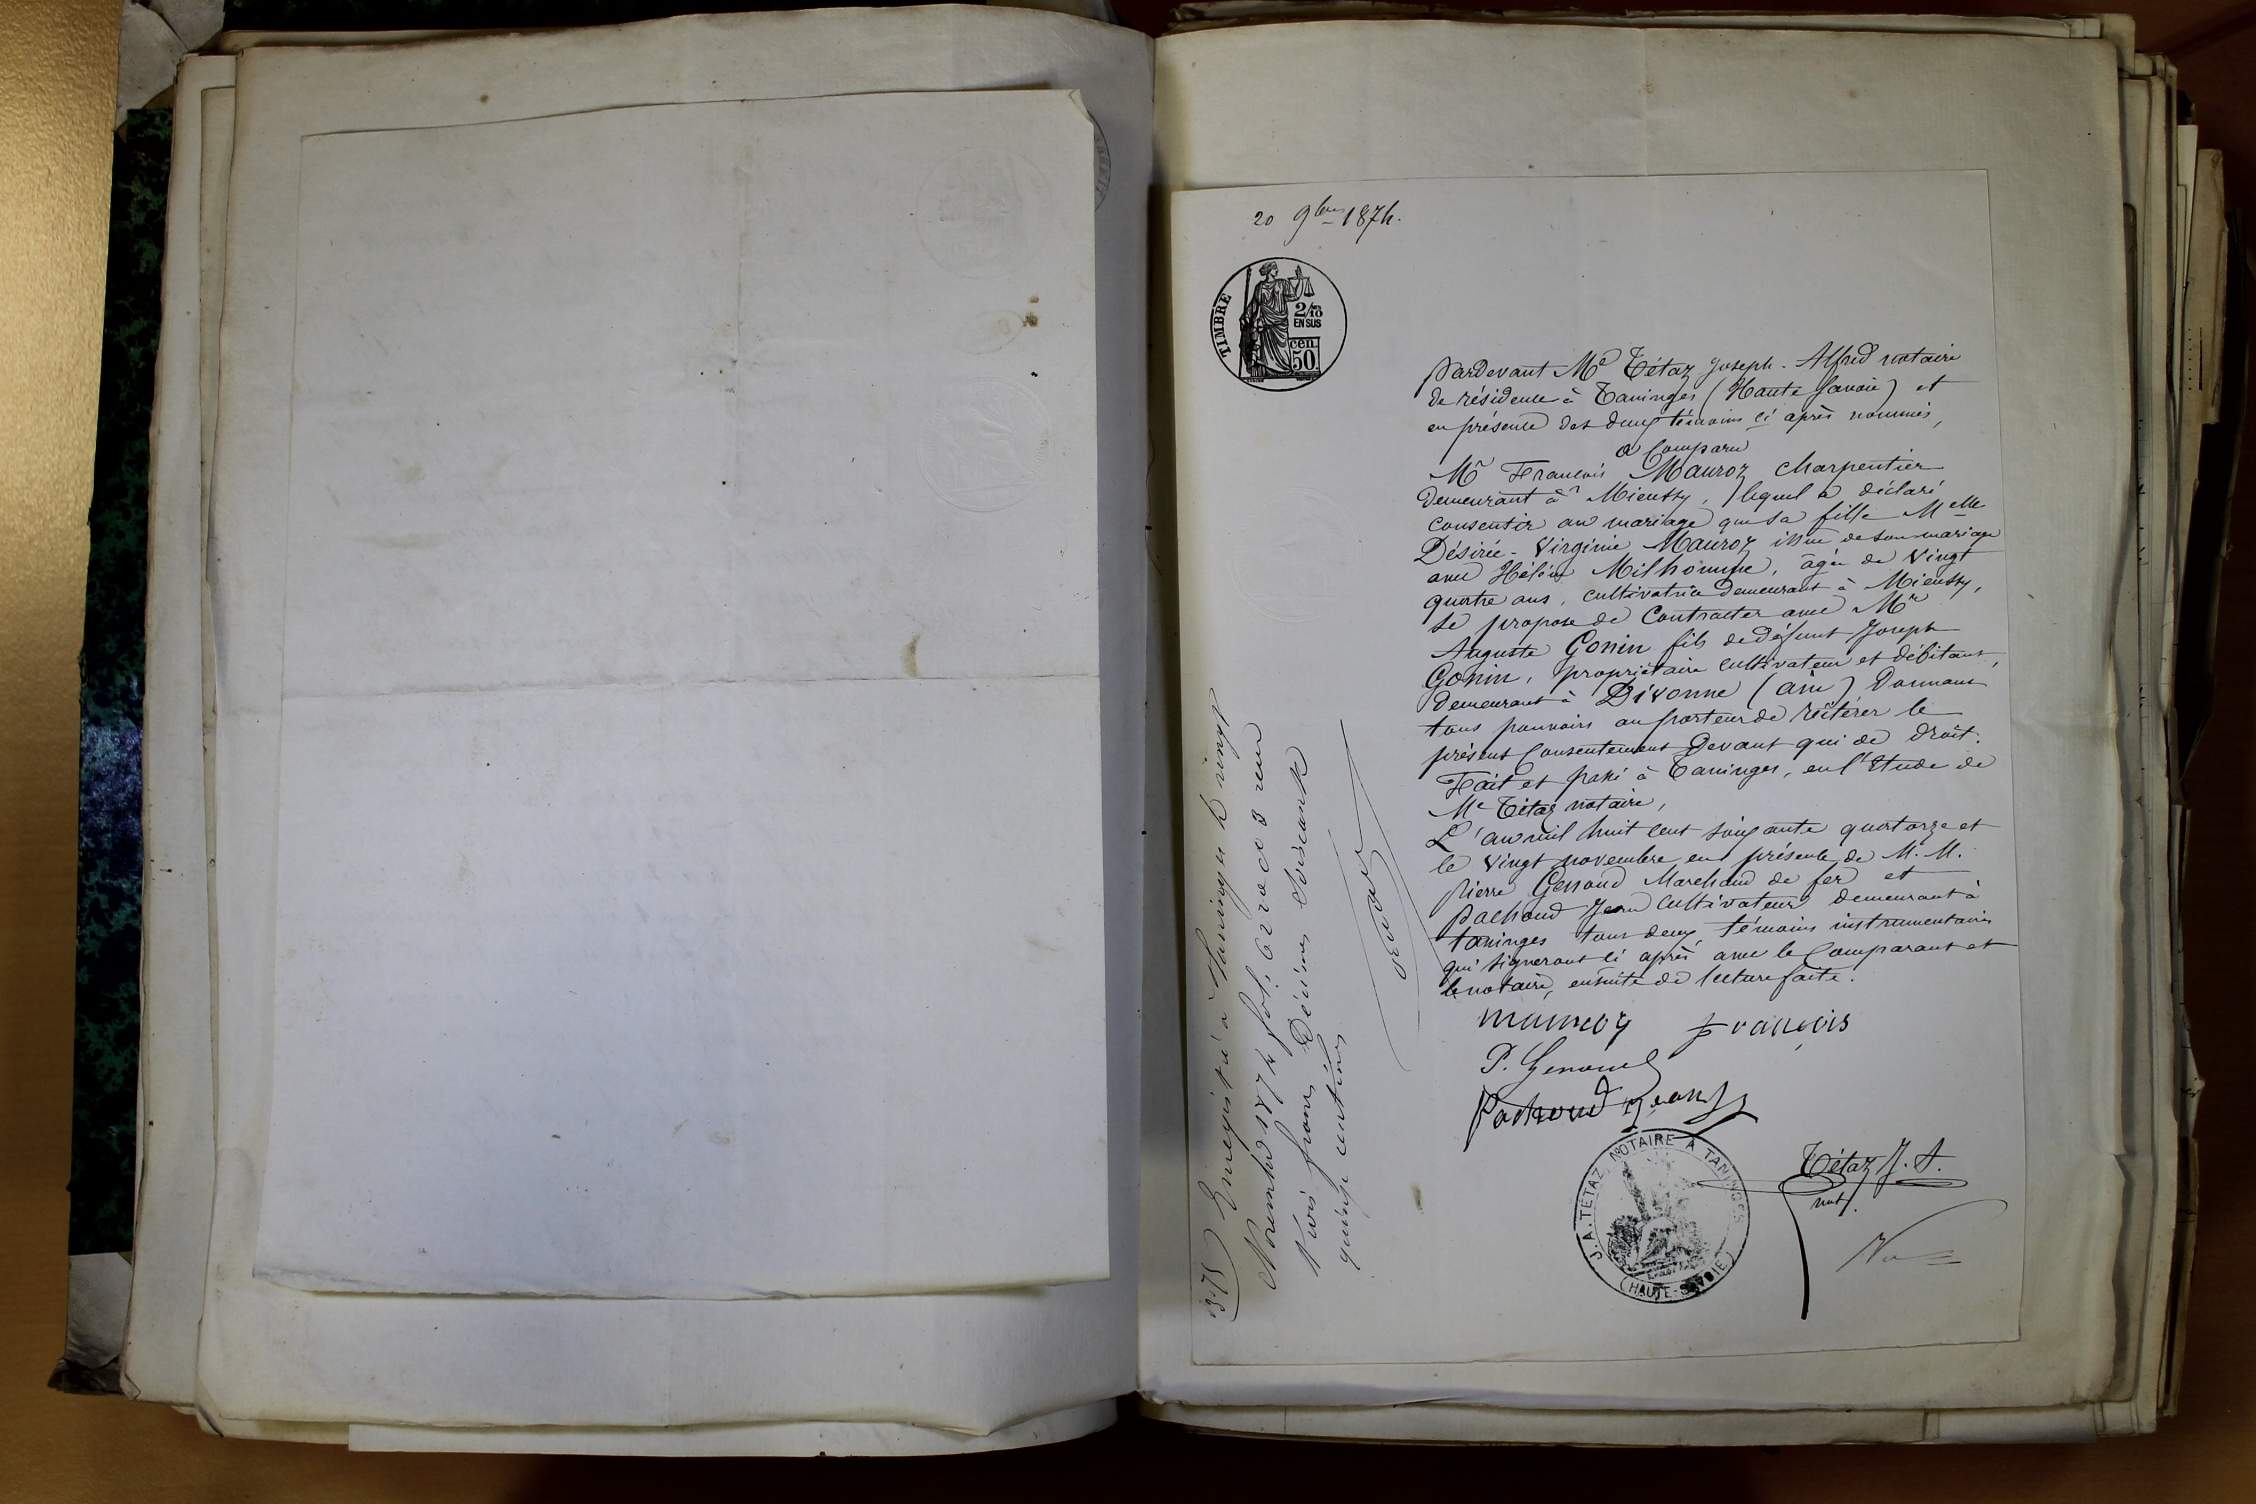 20 9bre 1874.
TIMBRE
2/10
EN SUS
cen.
50
Pardevant Me Tétaz Joseph-Alfred notaire
de résidence à Taninges (Haute Savoie) et
en présence des deux témoins ci après nommés,
a Comparu
Mr François Mauroz charpentier
demeurant à Mieussy, lequel a déclaré
consentir au mariage que sa fille Melle
Désirée-Virginie Mauroz issue de son mariage
avec Hélène Milhomme, âgée de vingt
quatre ans, cultivatrice demeurant à Mieussy,
se propose de Contracter avec Mr
Auguste Gonin fils de défunt Joseph
Gonin, propriétaire cultivateur et débitant,
demeurant à Divonne (ain) Donnant
tous pouvoirs au porteur de réitérer le
présent Consentement devant qui de droit.
Fait et passé à Taninges, en l'Etude de
Me Tétaz notaire,
L'an mil huit cent soixante quatorze et
le vingt novembre en présence de M.M.
Pierre Genoud Marchand de fer et
Pachoud Jean Cultivateur demeurant à
taninges tous deux témoins instrumentaires
qui signeront ci après avec le Comparant et
le notaire, ensuite de lecture faite.
mauroz françois
P. Genoud
Pachoud Jean
Tétaz J. A.
not.
J.A. TÉTAZ, NOTAIRE A TANINGES
(HAUTE-SAVOIE)
Enregistré à Taninges le vingt
Novembre 1874 fol.
trois francs Décimes soixante
quinze centimes